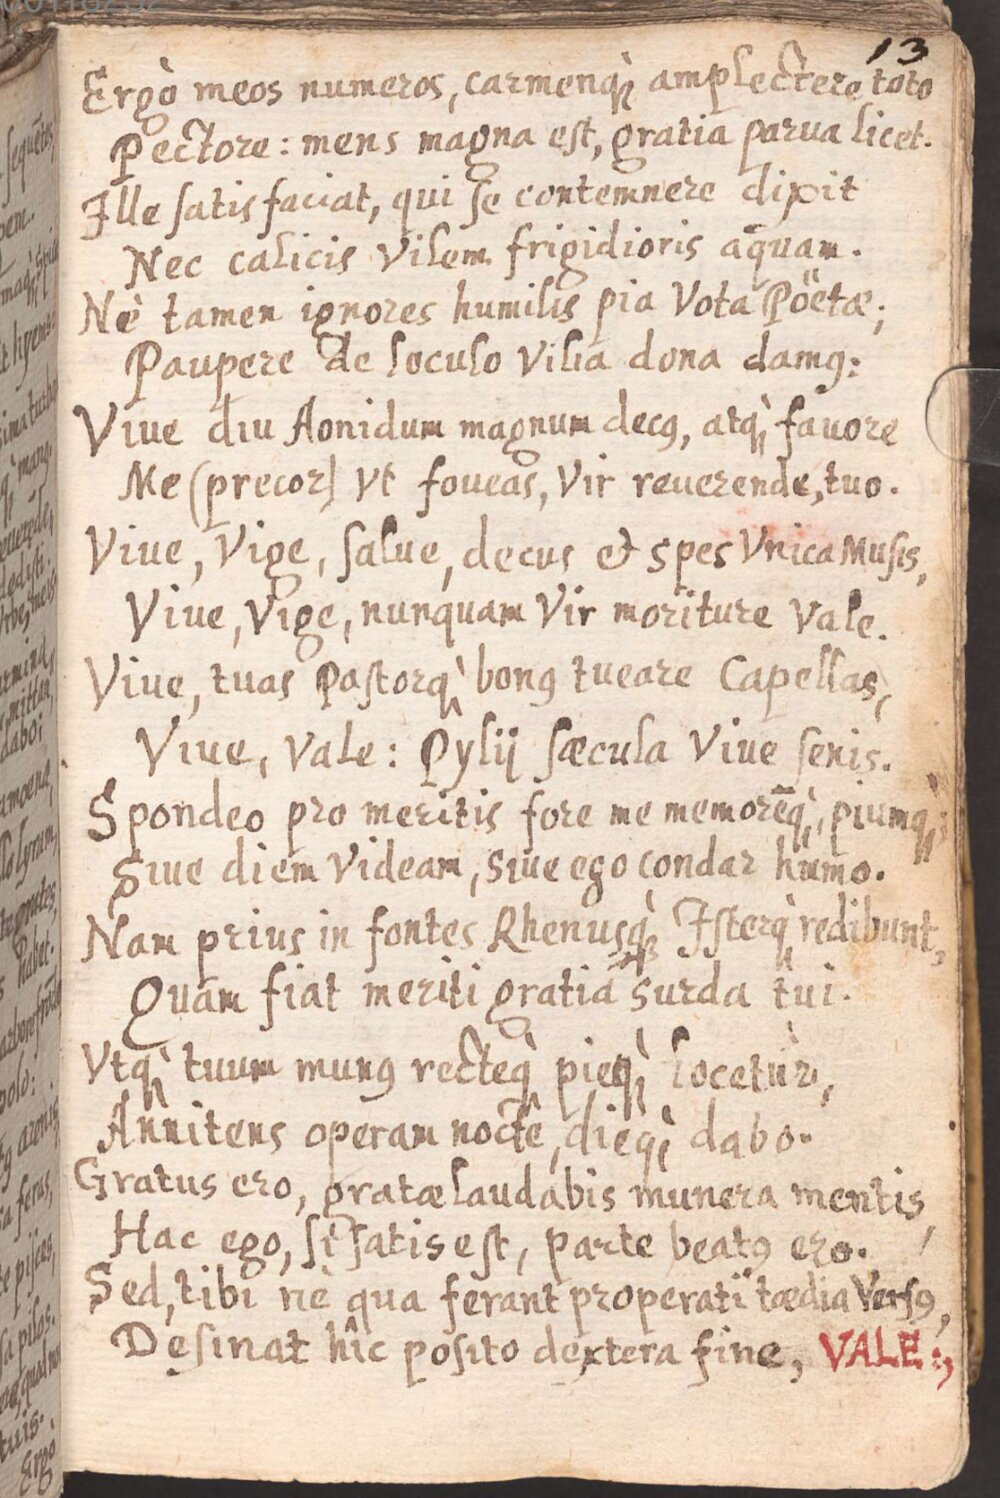 13
Ergò meos numeros, carmenq́; amplectere toto
Pectore: mens magna est, gratia parua licet.
Ille satisfaciat, qui se contemnere dixit
Nec calicis vilem frigidioris aquam.
Nè tamen ignores humilis pia vota Pöetæ;
Paupere de loculo vilia dona damꝰ:
Viue diu Aonidum magnum decꝰ, atq́; fauore
Me (precor) vt foueas, vir reuerende, tuo.
Viue, vige, salue, decus et spes vnica Musis,
Viue, vige, nunquam vir moriture vale.
Viue, tuas Pastorq́; bonꝰ tueare Capellas,
Viue, vale: Pylij sæcula viue senis.
Spondeo pro meritis fore me memorēq́;, piumq́;;
Siue diem videam, siue ego condar humo.
Nam prius in fontes Rhenusq́; Isterq́; redibunt,
Quàm fiat meriti gratia surda tui.
Vtq́; tuum munꝰ rectèq́; pieq́; locetùr,
Annitens operam noctê, dieq́; dabo.
Gratus ero, gratæ laudabis munera mentis,
Hac ego, si satis est, parte beatꝰ ero.
Sed, tibi nè qua ferant properati tædia versꝰ,
Desinat hîc posito dextera fine, VALE:,
Ergò